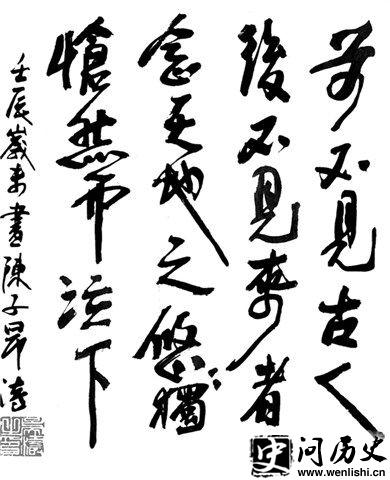 前不見古人
後不見來者
念天地之悠〻獨
愴然而涕下
壬辰歲末書陳子昂詩
史 问历史
www.wenlishi.cn